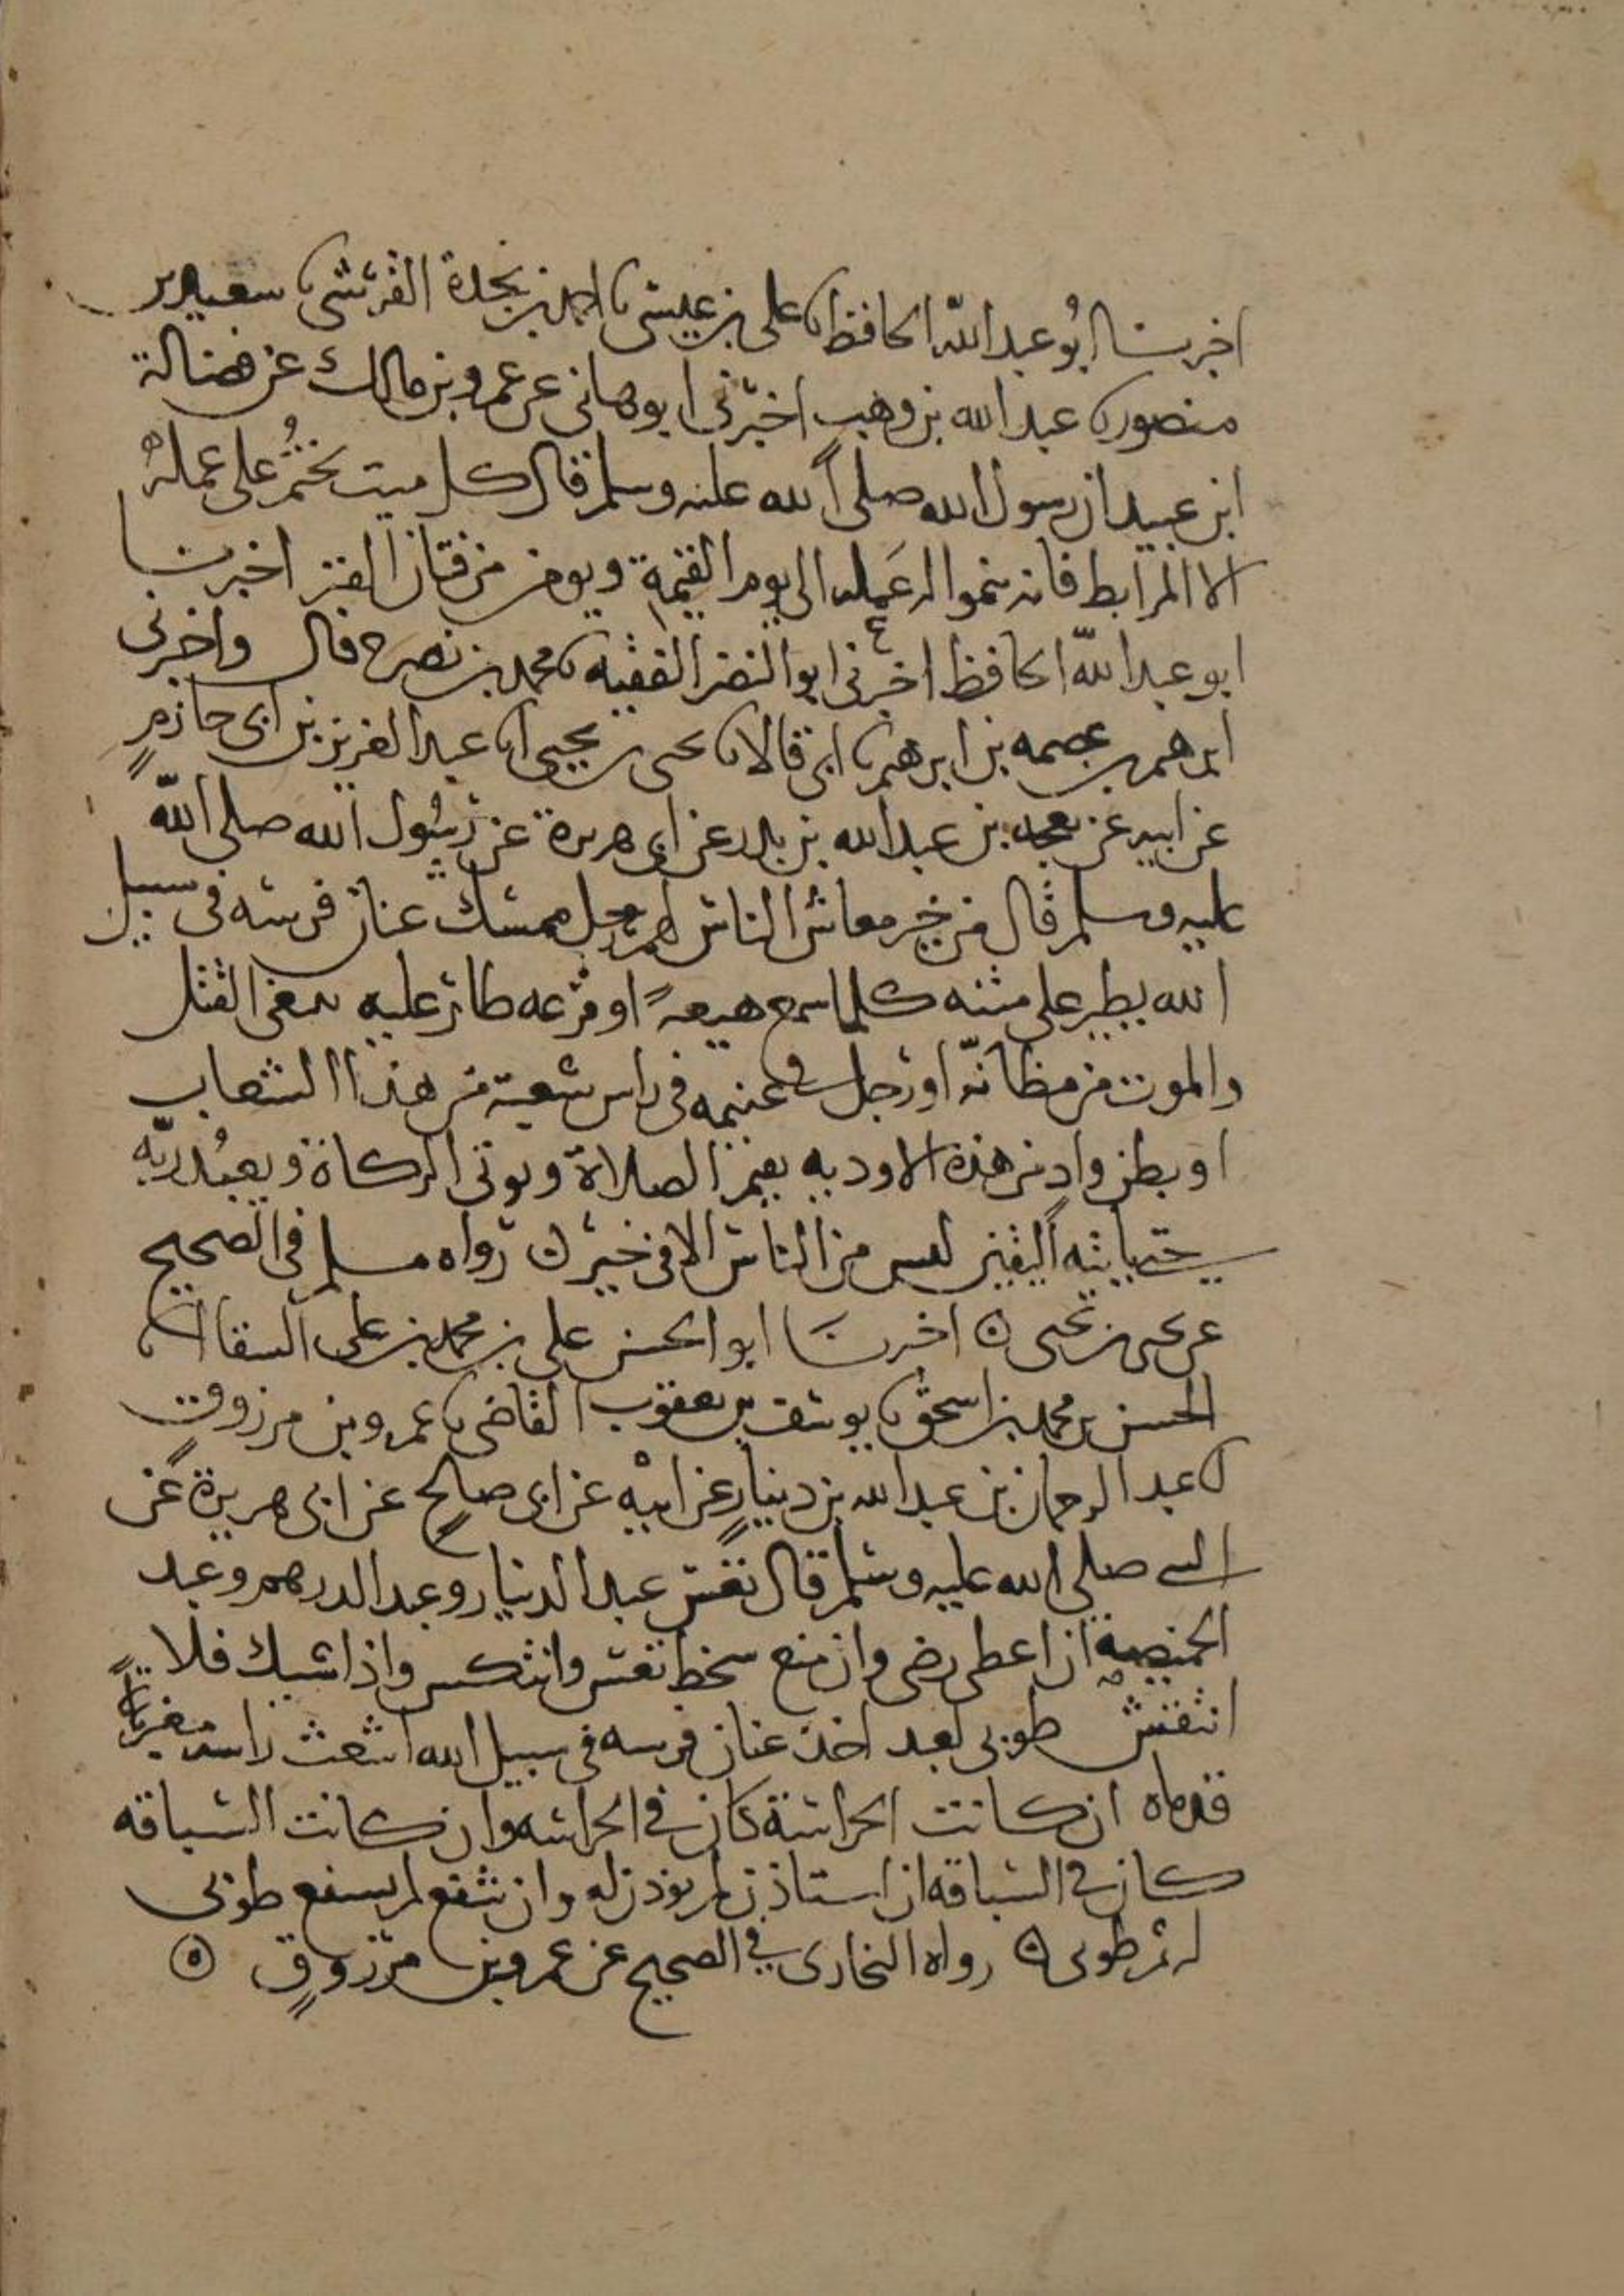 اخبرنا ابو عبد الله الحافظ نا علي بن عيسى نا احمد بن نجدة القرشي نا سعيد بن
منصور نا عبد الله بن وهب اخبرني ابو هاني عن عمرو بن مالك عن فضالة
ابن عبيد ان رسول الله صلى الله عليه وسلم قال كل ميت يختم على عمله
الا المرابط فانه ينموا له عمله الى يوم القيمة ويومن من فتان القبر اخبرنا
ابو عبد الله الحافظ اخبرني ابو النضر الفقيه نا محمد بن نصر ح قال واخبرني
ابرهيم بن عصمه بن ابرهيم نا ابي قالا نا يحيى بن يحيى انا عبد العزيز بن ابي حازم
عن ابيه عن بعجه بن عبد الله بن بدر عن ابي هريرة عن رسول الله صلى الله
عليه وسلم قال من خير معاش الناس لهم رجل ممسك عنان فرسه في سبيل
الله يطير على متنه كلما سمع هيعة او فزعه طار عليه يبتغي القتل
والموت من مظانه او رجل في غنيمه في راس شعبة من هذا الشعاب
او بطن واد من هذه الاوديه يقيم الصلاة ويوتي الزكاة ويعبد ربه
حتى ياتيه اليقين ليس من الناس الا في خير ٥ رواه مسلم في الصحيح
عن يحيى بن يحيى ٥ اخبرنا ابو الحسن علي بن محمد بن علي السقا انا
الحسن بن محمد بن اسحق نا يوسف بن يعقوب القاضي نا عمرو بن مرزوق
نا عبد الرحمان بن عبد الله بن دينار عن ابيه عن ابي صالح عن ابي هريرة عن
النبي صلى الله عليه وسلم قال تعس عبد الدينار وعبد الدرهم وعبد
الخميصه ان اعطى رضي وان منع سخط تعس وانتكس واذا شيك فلا
انتقش طوبى لعبد اخذ عنان فرسه في سبيل الله اشعث راسه مغبرة
قدماه ان كانت الحراسة كان في الحراسه وان كانت السياقه
كان في السياقه ان استاذن لم يوذن له وان شفع لم يشفع طوبى
له ثم طوبى ٥ رواه البخاري في الصحيح عن عمرو بن مرزوق ٥